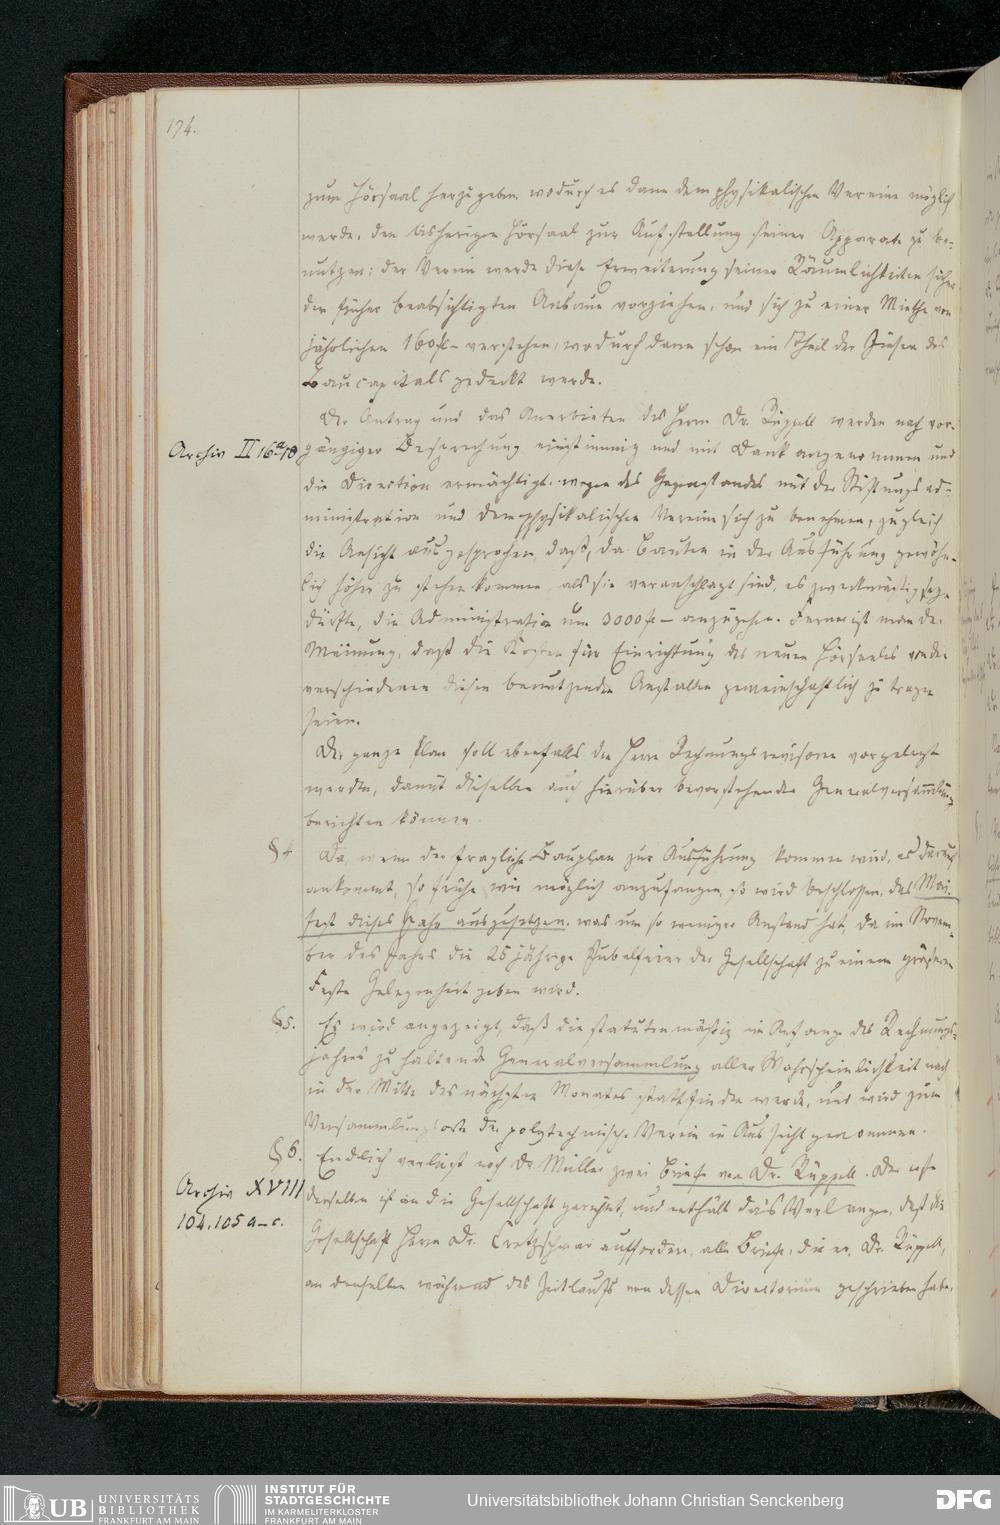 174.
zum Hörsaal herzugeben, wodurch es dann dem physikalischen Vereine möglich
werde, den bisherigen Hörsaal zur Aufstellung seiner Apparate zu be-
nutzen; der Verein werde diese Erweiterung seiner Räumlichkeiten sicher
dem früher beabsichtigten Anbaue vorziehen, und sich zu einer Miethe von
jährlichen 160 fl – verstehen, wodurch dann schon ein Theil der Zinsen des
Baucapitals gedeckt werde.
Der Antrag und das Anerbieten des Herrn Dr. Rüppell werden nach vor-
Archiv II 16a-18
gängiger Besprechung einstimmig und mit Dank angenommen und
die Direction ermächtigt, wegen des Gegenstandes mit der Stiftungsad-
ministration und dem physikalischen Vereine sich zu benehmen; zugleich
die Ansicht ausgesprochen, daß, da Bauten in der Ausführung gewöhn-
lich höher zu stehen kommen, als sie veranschlagt sind, es zweckmäßig seyn
dürfte, die Administration um 3000 fl – anzugehen. Ferner ist man der
Meinung, daß die Kosten für Einrichtung des neuen Hörsaales von den
verschiedenen diesen benutzenden Anstalten gemeinschaftlich zu tragen
seien.
Der ganze Plan soll ebenfalls den Herrn Rechnungsrevisoren vorgelegt
werden, damit dieselben auch hierüber bevorstehender Generalversammlung
berichten können.
§ 4
Da, wenn der fragliche Bauplan zur Ausführung kommen wird, es darauf
ankommt, so frühe wie möglich anzufangen, so wird beschlossen, das Mai-
fest dieses Jahr auszusetzen, was um so weniger Anstand hat, da im Novem-
ber des Jahres die 25 jährige Jubelfeier der Gesellschaft zu einem größeren
Feste Gelegenheit geben wird.
§ 5.
Es wird angezeigt, daß die statutenmäßig im Anfange des Rechnungs-
jahres zu haltende Generalversammlung aller Wahrscheinlichkeit nach
in der Mitte des nächsten Monates stattfinden werde, und wird zum
Versammlungsorte der polytechnische Verein in Aussicht genommen.
§ 6.
Endlich verliest noch Dr. Müller zwei Briefe von Dr. Rüppell. Der erste
Archiv XVIII
104.105 a–c.
derselben ist an die Gesellschaft gerichtet, und enthält das Verlangen, daß die
Gesellschaft Herrn Dr. Cretzschmar auffordere, alle Briefe, die er, Dr. Rüppell,
an denselben während des Zeitlaufs von dessen Directorium geschrieben habe,
UB UNIVERSITÄTS
BIBLIOTHEK
FRANKFURT AM MAIN
INSTITUT FÜR
STADTGESCHICHTE
IM KARMELITERKLOSTER
FRANKFURT AM MAIN
Universitätsbibliothek Johann Christian Senckenberg
DFG